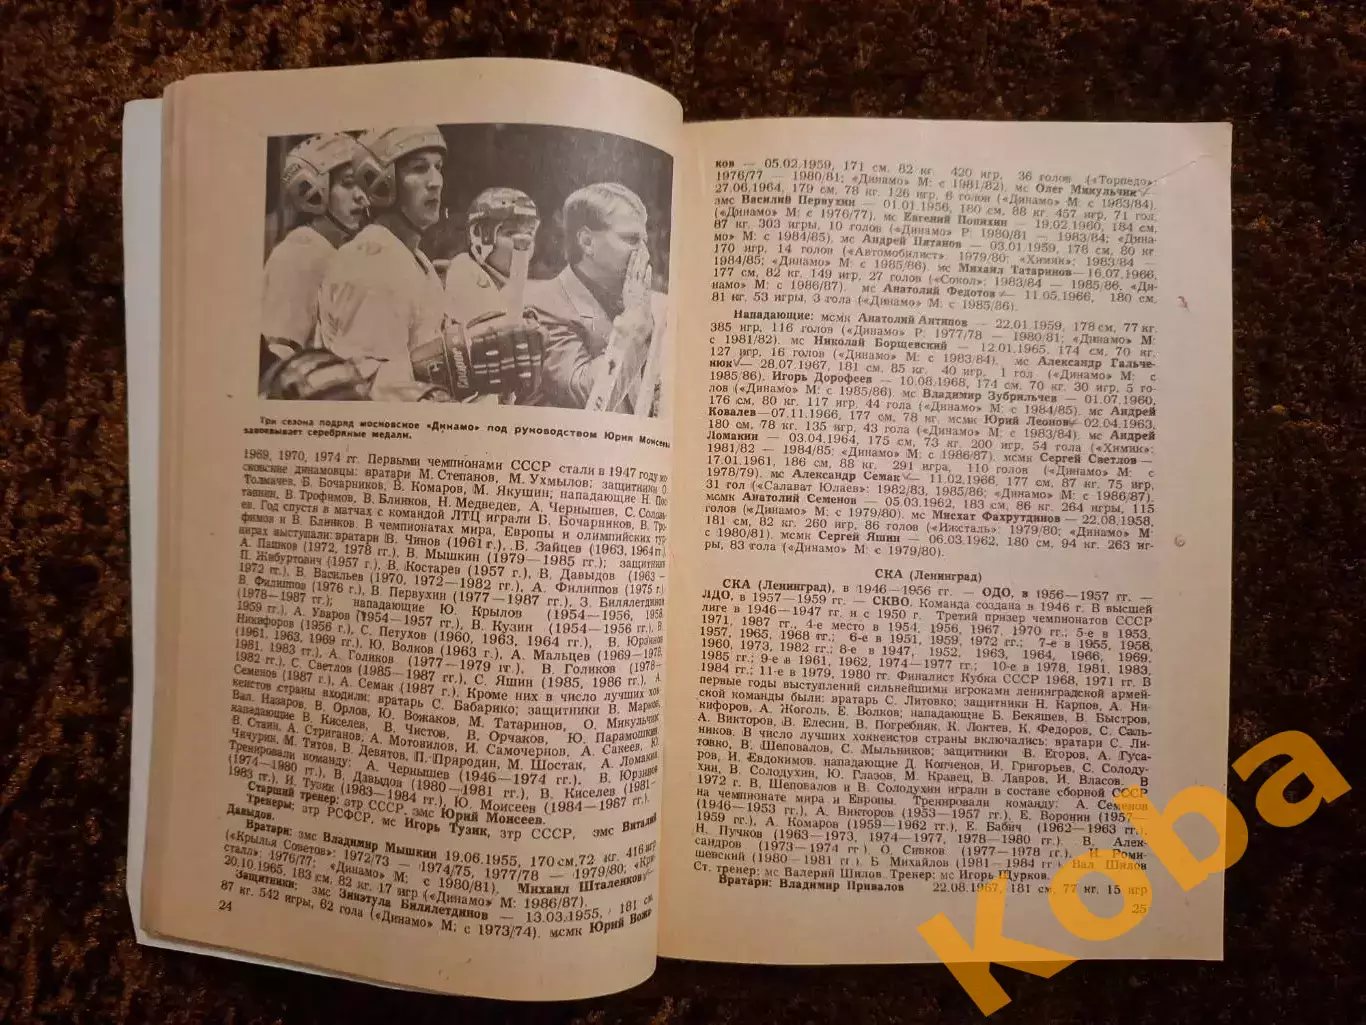 Три сезона подряд московское «Динамо» под руководством Юрия Моисеева
завоевывает серебряные медали.
1969, 1970, 1974 гг. Первыми чемпионами СССР стали в 1947 году мо-
сковские динамовцы: вратари М. Степанов, М. Ухмылов; защитники О.
Толмачев, Б. Бочарников, В. Комаров, М. Якушин; нападающие Н. Пос-
тавнин, В. Трофимов, В. Блинков, Н. Медведев, А. Чернышев, С. Соловь-
ев. Год спустя в матчах с командой ЛТЦ играли Б. Бочарников, В. Тро-
фимов и В. Блинков. В чемпионатах мира, Европы и олимпийских тур-
нирах выступали: вратари В. Чинов (1961 г.), Б. Зайцев (1963, 1964 гг.),
А. Пашков (1972, 1978 гг.), В. Мышкин (1979—1985 гг.); защитники
П. Жибуртович (1957 г.), В. Костарев (1957 г.), В. Давыдов (1963—
1972 гг.), В. Васильев (1970, 1972—1982 гг.), А. Филиппов (1975 г.),
В. Филиппов (1976 г.), В. Первухин (1977—1987 гг.), З. Билялетдинов
(1978—1987 гг.); нападающие Ю. Крылов (1954—1956, 1958,
1959 гг.), А. Уваров (1954—1957 гг.), В. Кузин (1954—1956 гг.), В.
Никифоров (1956 г.), С. Петухов (1960, 1963, 1964 гг.), В. Юрзинов
(1961, 1963, 1969 гг.), Ю. Волков (1963 г.), А. Мальцев (1969—1978,
1981, 1983 гг.), А. Голиков (1977—1979 гг.), В. Голиков (1978—
1982 гг.), С. Светлов (1985—1987 гг.), С. Яшин (1985, 1986 гг.), А.
Семенов (1987 г.), А. Семак (1987 г.). Кроме них в число лучших хок-
кеистов страны входили: вратарь С. Бабарико; защитники В. Марков,
Вал. Назаров, В. Орлов, Ю. Вожаков, М. Татаринов, О. Микульчик
нападающие В. Киселев, В. Чистов, В. Орчаков, Ю. Парамошкин,
В. Стаин, А. Стриганов, А. Мотовилов, И. Самочернов, А. Сакеев, Ю.
Чичурин, М. Титов, В. Девятов, П. Природин, М. Шостак, А. Ломакин.
Тренировали команду: А. Чернышев (1946—1974 гг.), В. Юрзинов
(1974—1980 гг.), В. Давыдов (1980—1981 гг.), В. Киселев (1981—
1983 гг.), И. Тузик (1983—1984 гг.), Ю. Моисеев (1984—1987 гг.).
Старший тренер: зтр СССР, змс Юрий Моисеев.
Тренеры: зтр РСФСР, мс Игорь Тузик, зтр СССР, змс Виталий
Давыдов.
Вратари: змс Владимир Мышкин 19.06.1955, 170 см, 72 кг, 416 игр
(«Крылья Советов»: 1972/73 — 1974/75, 1977/78 — 1979/80; «Кри-
сталл»: 1976/77; «Динамо» М: с 1980/81). Михаил Шталенков
20.10.1965, 183 см, 82 кг. 17 игр («Динамо» М: 1986/87).
Защитники: змс Зинэтула Билялетдинов — 13.03.1955, 181 см,
87 кг. 542 игры, 62 гола («Динамо» М: с 1973/74). мсмк Юрий Вожа-
24
ков — 05.02.1959, 171 см, 82 кг. 420 игр, 36 голов («Торпедо»:
1976/77 — 1980/81; «Динамо» М: с 1981/82). мс Олег Микульчик —
27.06.1964, 179 см, 78 кг. 126 игр, 6 голов («Динамо» М: с 1983/84).
змс Василий Первухин — 01.01.1956, 180 см, 88 кг. 457 игр, 71 гол
(«Динамо» М: с 1976/77). мс Евгений Попихин — 19.02.1960, 184 см,
87 кг. 303 игры, 10 голов («Динамо» Р: 1980/81 — 1983/84; «Дина-
мо» М: с 1984/85). мс Андрей Пятанов — 03.01.1959, 178 см, 80 кг
170 игр, 14 голов («Автомобилист» 1979/80; «Химик»: 1983/84 —
1984/85; «Динамо» М: с 1985/86). мс Михаил Татаринов — 16.07.1966,
177 см, 82 кг. 149 игр, 27 голов («Сокол»: 1983/84 — 1985/86, «Ди-
намо» М: с 1986/87). мс Анатолий Федотов — 11.05.1966, 180 см,
81 кг. 53 игры, 3 гола («Динамо» М: с 1985/86).
Нападающие: мсмк Анатолий Антипов — 22.01.1959, 178 см, 77 кг.
385 игр, 116 голов («Динамо» Р: 1977/78 — 1980/81; «Динамо» М:
с 1981/82). мс Николай Борщевский — 12.01.1965, 174 см, 70 кг.
127 игр, 16 голов («Динамо» М: с 1983/84). мс Александр Гальче-
нюк — 28.07.1967, 181 см, 85 кг. 40 игр, 1 гол («Динамо» М: с
1985/86). Игорь Дорофеев — 10.08.1968, 174 см, 70 кг. 30 игр, 5 го-
лов («Динамо» М: с 1985/86). мс Владимир Зубрильчев — 01.07.1960,
176 см, 80 кг. 117 игр, 44 гола («Динамо» М: с 1984/85). мс Андрей
Ковалев — 07.11.1966, 177 см, 78 кг. мсмк Юрий Леонов — 02.04.1963,
180 см, 78 кг. 135 игр, 43 гола («Динамо» М: с 1983/84). мс Андрей
Ломакин — 03.04.1964, 175 см, 73 кг. 200 игр, 54 гола («Химик»:
1981/82 — 1984/85; «Динамо» М: с 1986/87). мсмк Сергей Светлов —
17.01.1961, 186 см, 88 кг. 291 игра, 110 голов («Динамо» М: с
1978/79). мс Александр Семак — 11.02.1966, 177 см, 87 кг. 75 игр,
31 гол («Салават Юлаев»: 1982/83, 1985/86; «Динамо» М: с 1986/87).
мсмк Анатолий Семенов — 05.03.1962, 183 см, 86 кг. 264 игры, 115
голов («Динамо» М: с 1979/80). мс Мисхат Фахрутдинов — 22.08.1958,
181 см, 82 кг. 260 игр, 86 голов («Ижсталь»: 1979/80; «Динамо» М:
с 1980/81). мсмк Сергей Яшин — 06.03.1962, 180 см, 94 кг. 263 иг-
ры, 83 гола («Динамо» М: с 1979/80).
СКА (Ленинград)
СКА (Ленинград), в 1946—1956 гг. — ОДО, в 1956—1957 гг. —
ЛДО, в 1957—1959 гг. — СКВО. Команда создана в 1946 г. В высшей
лиге в 1946—1947 гг. и с 1950 г. Третий призер чемпионатов СССР
1971, 1987 гг., 4-е место в 1954, 1956, 1967, 1970 гг.; 5-е в 1953,
1957, 1965, 1968 гг.; 6-е в 1951, 1959, 1972 гг.; 7-е в 1955, 1958,
1960, 1973, 1982 гг.; 8-е в 1947, 1952, 1963, 1964, 1966, 1969,
1985 гг.; 9-е в 1961, 1962, 1974—1977 гг.; 10-е в 1978, 1981, 1983,
1984 гг.; 11-е в 1979, 1980 гг. Финалист Кубка СССР 1968, 1971 гг. В
первые годы выступлений сильнейшими игроками ленинградской армей-
ской команды были: вратарь С. Литовко; защитники Н. Карпов, А. Ни-
кифоров, А. Жоголь, Е. Волков; нападающие Б. Бекяшев, В. Быстров,
А. Викторов, В. Елесин, В. Погребняк, К. Локтев, К. Федоров, С. Саль-
ников. В число лучших хоккеистов страны включались: вратари С. Ли-
товко, В. Шеповалов, С. Мыльников; защитники В. Егоров, А. Гуса-
ров, И. Евдокимов, нападающие Д. Копченов, И. Григорьев, С. Солоду-
хин, В. Солодухин, Ю. Глазов, М. Кравец, В. Лавров, И. Власов. В
1972 г. В. Шеповалов и В. Солодухин играли в составе сборной СССР
на чемпионате мира и Европы. Тренировали команду: А. Семенов
(1946—1953 гг.), А. Викторов (1953—1957 гг.), Е. Воронин (1957—
1959 гг.), А. Комаров (1959—1962 гг.), Е. Бабич (1962—1963 гг.),
Н. Пучков (1963—1973, 1974—1977, 1978—1980 гг.), В. Алек-
сандров (1973—1974 гг.), О. Сивков (1977—1978 гг.), И. Роми-
шевский (1980—1981 гг.), Б. Михайлов (1981—1984 гг.), Вал. Шилов
Ст. тренер: мс Валерий Шилов. Тренер: мс Игорь Щурков.
Вратари: Владимир Привалов 22.08.1967, 181 см, 77 кг. 15 игр
25
Koba